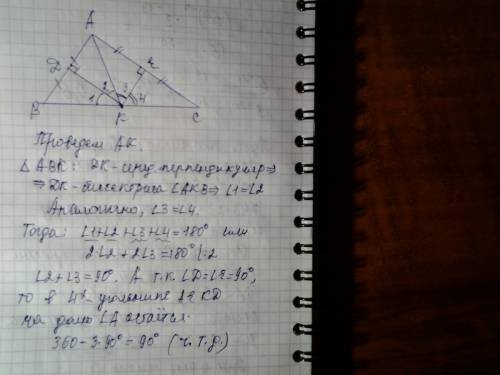 A
D
2
3
1
4
B
K
C
Проведем АК.
△ ABK: DK - серед. перпендикуляр ⇒
⇒ DK - биссектриса ∠AKB ⇒ ∠1=∠2
Аналогично, ∠3=∠4.
Тогда: ∠1+∠2+∠3+∠4=180° или
2∠2+2∠3=180° |:2
∠2+∠3=90°. А т.к. ∠D=∠E=90°,
то в 4х-угольнике AEKD
на долю ∠A остаётся
360-3·90°=90° (ч.т.д.)